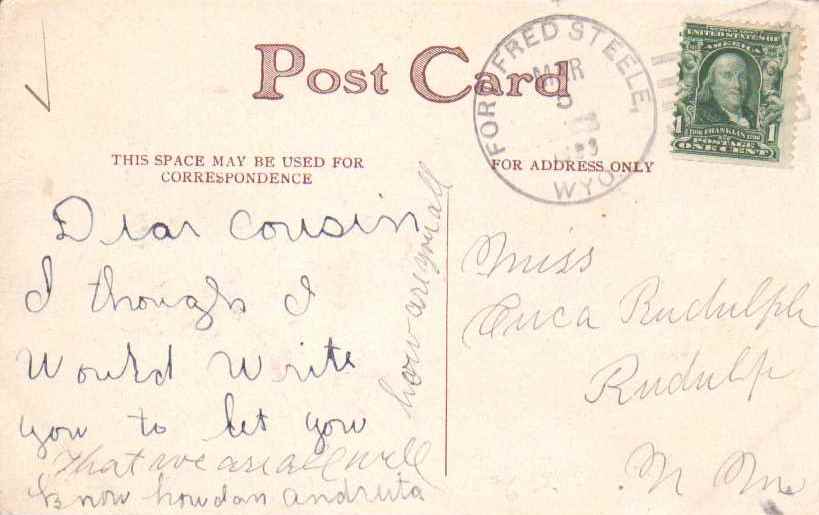 Post Card
THIS SPACE MAY BE USED FOR
CORRESPONDENCE
FOR ADDRESS ONLY
FORT FRED STEELE,
MAR
5
WYO.
UNITED STATES OF
AMERICA
FRANKLIN
POSTAGE
1 ONE CENT 1
Dear Cousin
I though I
Would Write
you to let you
that we are all well
know how dan and
how are you all
Miss
Rudulph
Rudulph
N Mex